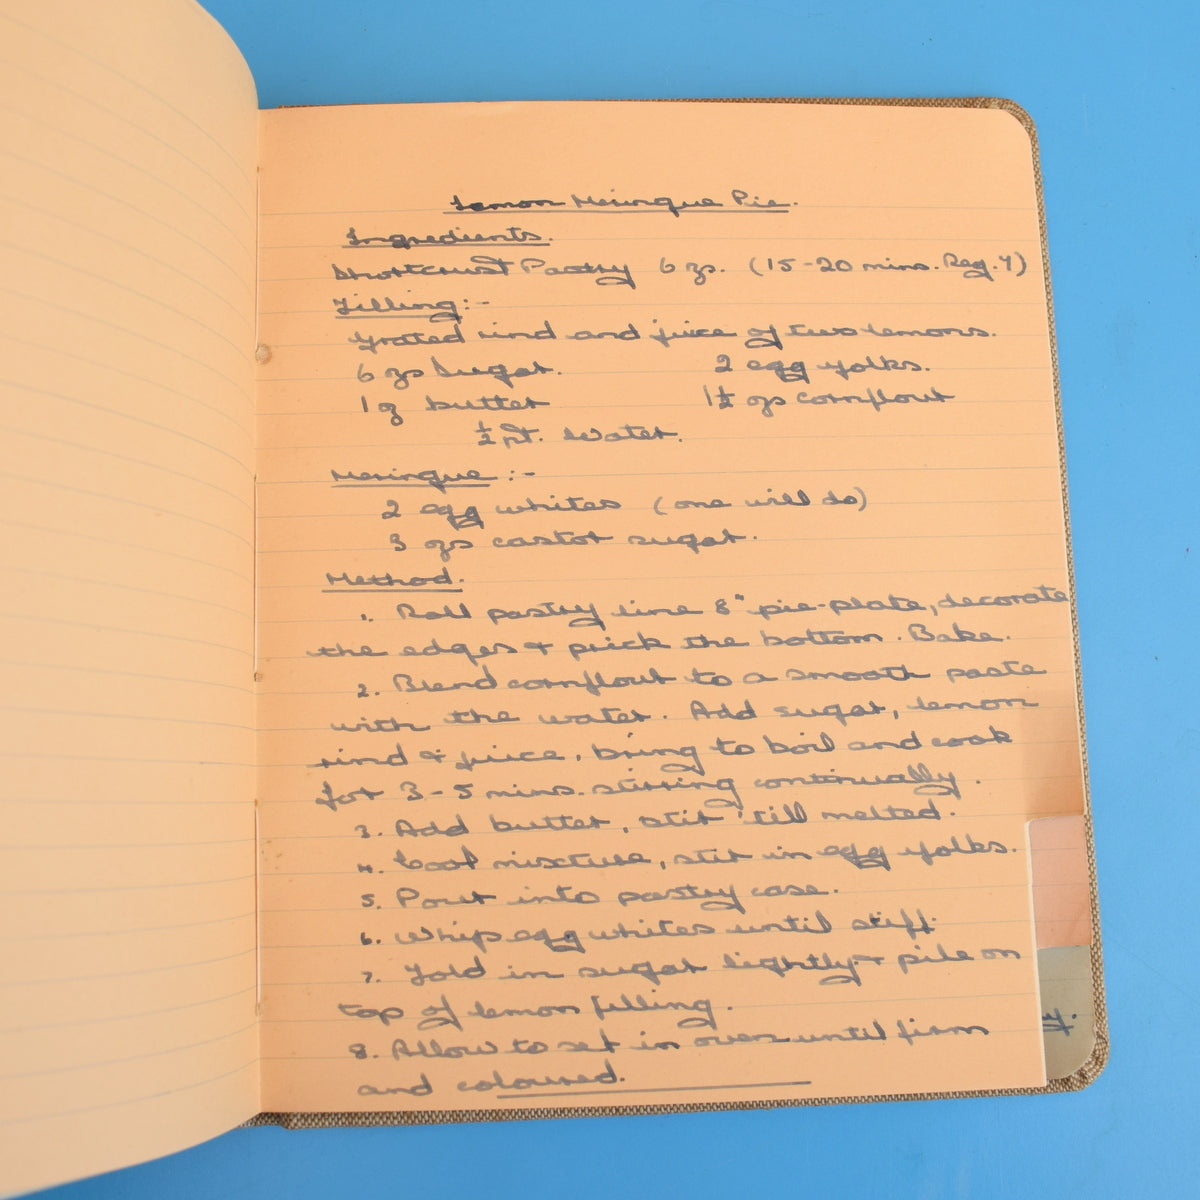 Lemon Meringue Pie.
Ingredients.
Shortcrust Pastry 6 ozs. (15-20 mins. Reg. 7)
Filling:-
Grated rind and juice of two lemons.
6 ozs Sugar. 2 egg yolks.
1 oz butter 1½ ozs cornflour
½ pt. Water.
Meringue :-
2 egg whites (one will do)
3 ozs castor sugar.
Method.
1. Roll pastry line 8" pie-plate, decorate
the edges & prick the bottom. Bake.
2. Blend cornflour to a smooth paste
with the water. Add sugar, lemon
rind & juice, bring to boil and cook
for 3-5 mins. stirring continually.
3. Add butter, stir 'till melted.
4. Cool mixture, stir in egg yolks.
5. Pour into pastry case.
6. Whip egg whites until stiff.
7. Fold in sugar lightly & pile on
top of lemon filling.
8. Allow to set in oven until firm
and coloured.